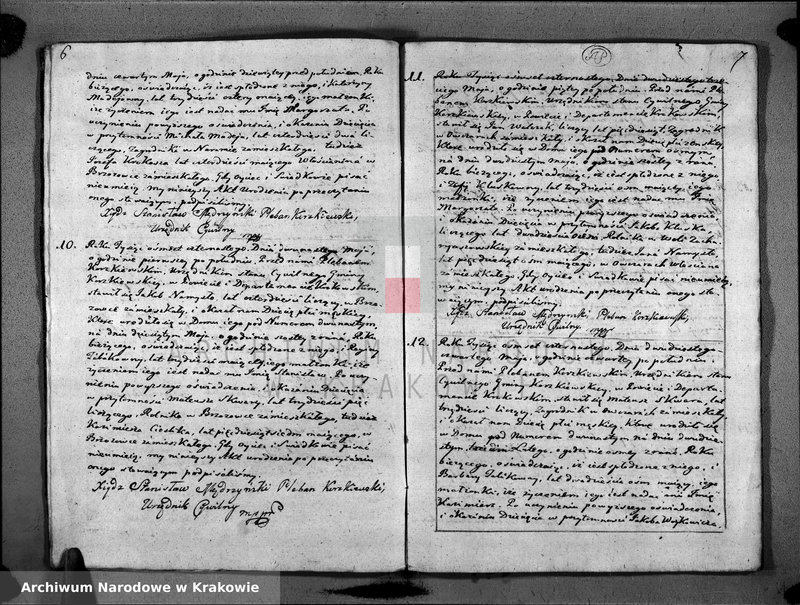 6
dniu czwartym Maja, o godzinie dziewiątey przed południem, Roku
bieżącego, oświadczając, iż jest spłodzone z niego, i Katarzyny
Madejowny, lat trzydzieści cztery maiącey, jego małżonki,
iż życzeniem jego jest nadać mu Imię Małgorzata. Po
uczynieniu powyższego oświadczenia, i okazaniu Dziecięcia
w przytomności Michała Madeja, lat czterdzieści dwa li-
czącego, Zagrodnika w zamieszkałego, tudzież
Jozefa lat czterdzieści maiącego Włościanina w
Brzozowce zamieszkałego. Gdy Oyciec i Świadkowie pisać
nieumieią, my niniejszy Akt Urodzenia po przeczytaniu
onego stawaiącym podpisaliśmy.
Xiądz Stanisław Mędrzyński Pleban Korzkiewski,
Urzędnik Cywilny
10. Roku Tysiąc ośmset czternastego. Dnia dwunastego Maja,
o godzinie pierwszey po południu. Przed nami Plebanem
Korzkiewskim, Urzędnikiem stanu Cywilnego Gminy
Korzkiewskiey, w Powiecie i Departamencie Krakowskim,
stawił się Jakob Namysło, lat czterdzieści liczący, w Brzo-
zowce zamieszkały, i okazał nam Dziecię płci męskiey,
Które urodziło się w Domu jego pod Numerem dwunastym,
na dniu dziesiątym Maja, o godzinie szostey z rana, Roku
bieżącego, oświadczając, iż jest spłodzone z niego, i Reginy
lat trzydzieści maiącey, jego małżonki, iż
życzeniem jego jest nadać mu Imię Stanisław. Po uczy-
nieniu powyższego oświadczenia, i okazaniu Dziecięcia
w przytomności Mateusza Skwary, lat trzydzieści pięć
liczącego, Rolnika w Brzozowce zamieszkałego, tudzież
Kazimierza Cieslika, lat pięćdziesiąt siedm maiącego, w
Brzozowce zamieszkałego. Gdy Oyciec i Świadkowie pisać
nieumieią, my niniejszy Akt urodzenia po przeczytaniu
onego stawaiącym podpisaliśmy.
Xiądz Stanisław Mędrzyński Pleban Korzkiewski,
Urzędnik Cywilny
7
11. Roku Tysiąc ośmset czternastego, Dnia dwudziestego trze-
ciego Maja, o godzinie piątey po południu. Przed nami Ple-
banem Korzkiewskim, Urzędnikiem stanu Cywilnego Gminy
Korzkiewskiey, w Powiecie i Departamencie Krakowskim,
stawił się Jan liczący lat pięćdziesiąt Zagrodnik
w Owczarach zamieszkały, i okazał nam Dziecię płci żeńskiey,
Które urodziło się w Domu jego pod Numerem osmym,
na dniu dwudziestym Maja, o godzinie szostey z rana,
Roku bieżącego, oświadczając, iż jest spłodzone z niego,
i Zofij lat trzydzieści maiącey, jego
małżonki, iż życzeniem jego jest nadać mu Imię
Małgorzata. Po uczynieniu powyższego oświadczenia
i okazaniu Dziecięcia w przytomności Jakoba
liczącego lat dwadzieścia Rolnika w
zamieszkałego, tudzież Jana Namysło,
lat pięćdziesiąt i ośm maiącego, w Owczarach Włościanina
zamieszkałego. Gdy Oyciec i Świadkowie pisać nieumieią,
my niniejszy Akt Urodzenia po przeczytaniu onego sta-
waiącym, podpisaliśmy.
Xiądz Stanisław Mędrzyński Pleban Korzkiewski,
Urzędnik Cywilny.
12. Roku Tysiąc ośmset czternastego. Dnia dwudziestego-
czwartego Maja, o godzinie czwartey po południu.
Przed nami Plebanem Korzkiewskim, Urzędnikiem stanu
Cywilnego Gminy Korzkiewskiey, w Powiecie i Departa-
mencie Krakowskim, stawił się Mateusz Skwara, lat
trzydzieści liczący, Zagrodnik w Owczarach zamieszkały
i okazał nam Dziecię płci męskiey, Które urodziło się
w Domu pod Numerem dwunastym na dniu dwudzie-
stym o godzinie osmey z rana, Roku
bieżącego, oświadczając, iż jest spłodzone z niego, i
Barbary lat dwadzieścia ośm maiącey, jego
małżonki, iż życzeniem jego jest nadać mu Imię
Kazimierz. Po uczynieniu powyższego oświadczenia,
i okazaniu Dziecięcia w przytomności Jakoba Woykowicza,
ARCHIWUM NARODOWE
W KRAKOWIE
Archiwum Narodowe w Krakowie